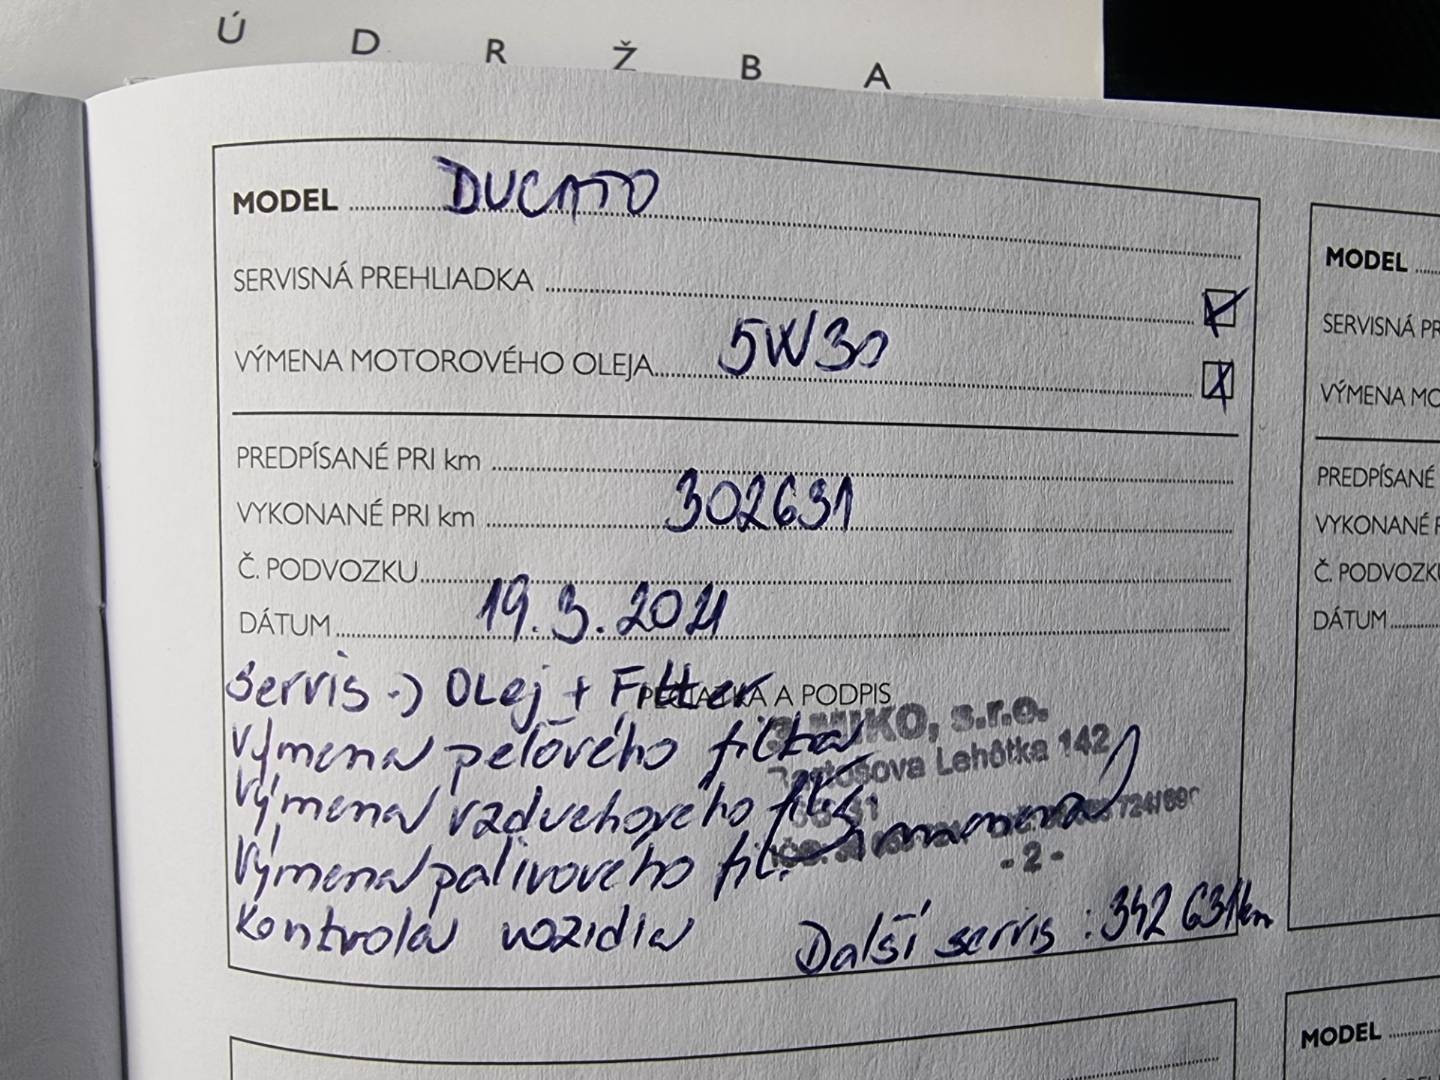 ÚDRŽBA
MODEL DUCATO
SERVISNÁ PREHLIADKA
VÝMENA MOTOROVÉHO OLEJA 5W30
PREDPÍSANÉ PRI km
VYKONANÉ PRI km 302631
Č. PODVOZKU
DÁTUM 19.3.2021
Servis -) Olej + Filter
PEČIATKA A PODPIS
MIKO, s.r.o.
Výmena peľového filtra
Lehôtka 142
Výmena vzduchového
Výmena palivového
- 2 -
Kontrola vozidla
Další servis : 342 631km
MODEL
SERVISNÁ PR
VÝMENA MO
PREDPÍSANÉ
VYKONANÉ P
Č. PODVOZKU
DÁTUM
MODEL